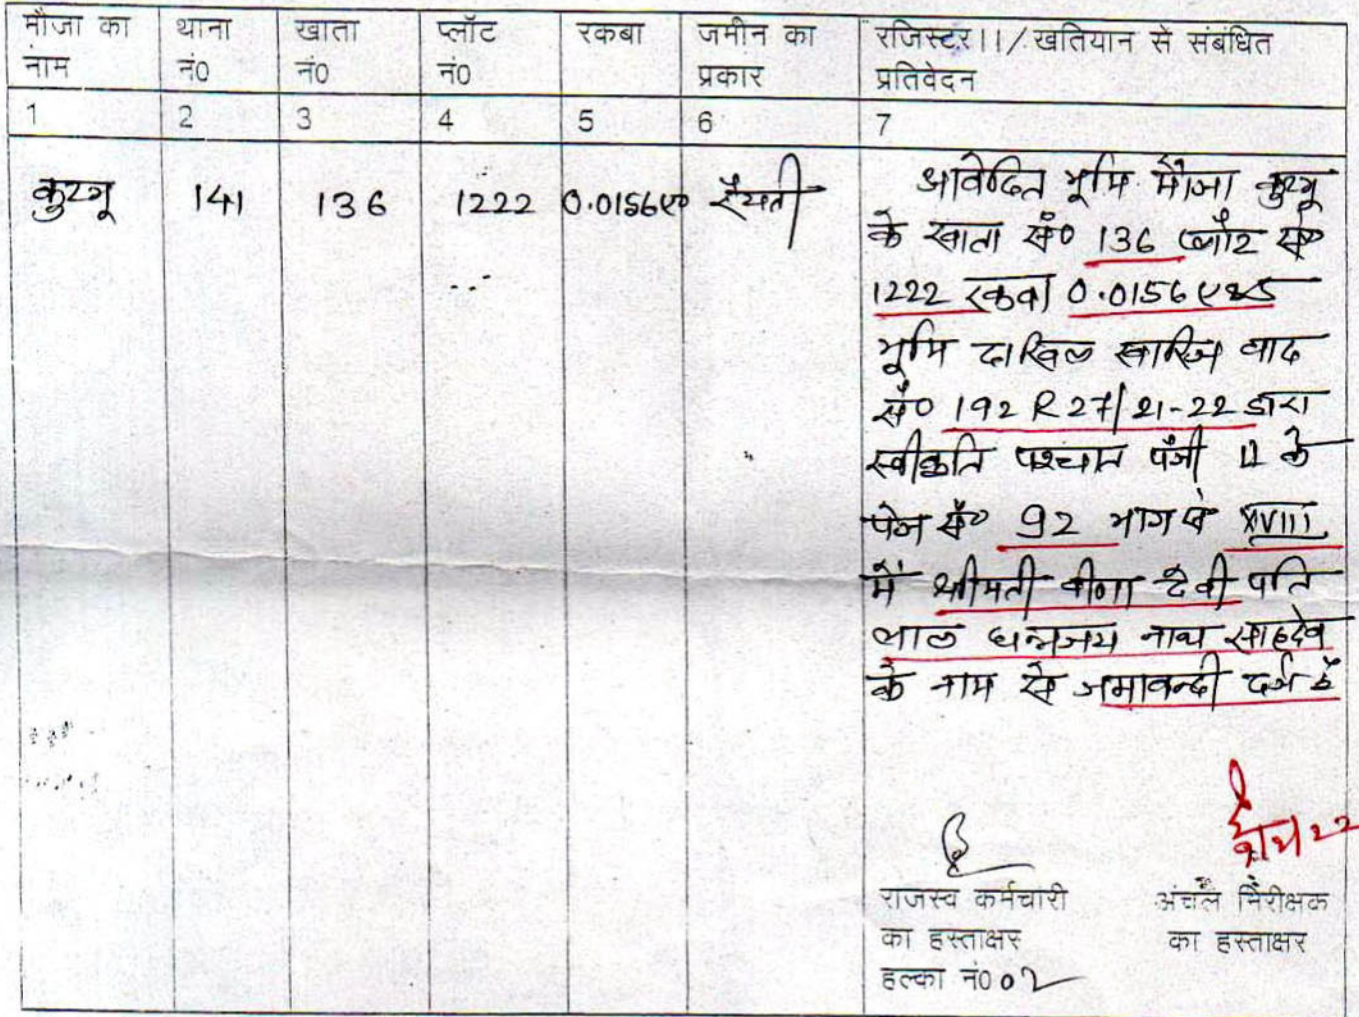 मौजा का नाम थाना नं0 खाता नं0 प्लॉट नं0 रकबा जमीन का प्रकार रजिस्टर।।/खतियान से संबंधित प्रतिवेदन
1 2 3 4 5 6 7
कुरगू 141 136 1222 0.0156ए० रैयती
आवेदित भूमि मौजा कुरगू
के खाता सं० 136 प्लौट सं०
1222 रकवा 0.0156 एकड़
भूमि दाखिल खारिज वाद
सं० 192 R 27/21-22 द्वारा
स्वीकृति पश्चात पंजी II के
पेज सं० 92 भाग XVIII
में श्रीमती वीणा देवी पति
लाल धनन्जय नाथ साहदेव
के नाम से जमावन्दी दर्ज है
राजस्व कर्मचारी
का हस्ताक्षर
हल्का नं0 02
अंचल निरीक्षक
का हस्ताक्षर